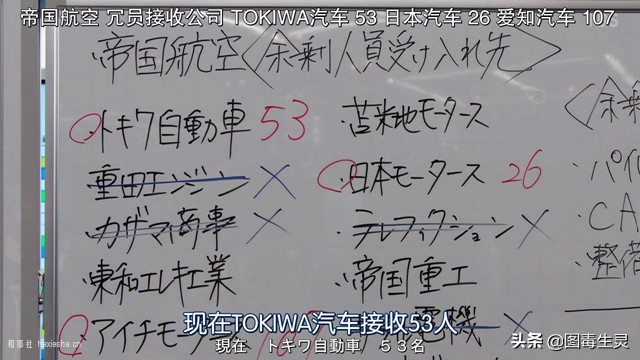 帝国航空 冗员接收公司 TOKIWA汽车 53 日本汽车 26 爱知汽车 107
帝国航空〈余剰人員受け入れ先
・トキワ自動車 53
・重田エンジン ×
・カザマ商事 ×
・東和エレキ工業
・アイチモー
・苫米地モータース
・日本モータース 26
・テレフィクション ×
・帝国重工
電機 ×
〈余剰
・パイ
・CA
・整備
现在TOKIWA汽车接收53人
現在 トキワ自動車 53名
稻荷社 hexieshe.cn
头条 @图毒生灵